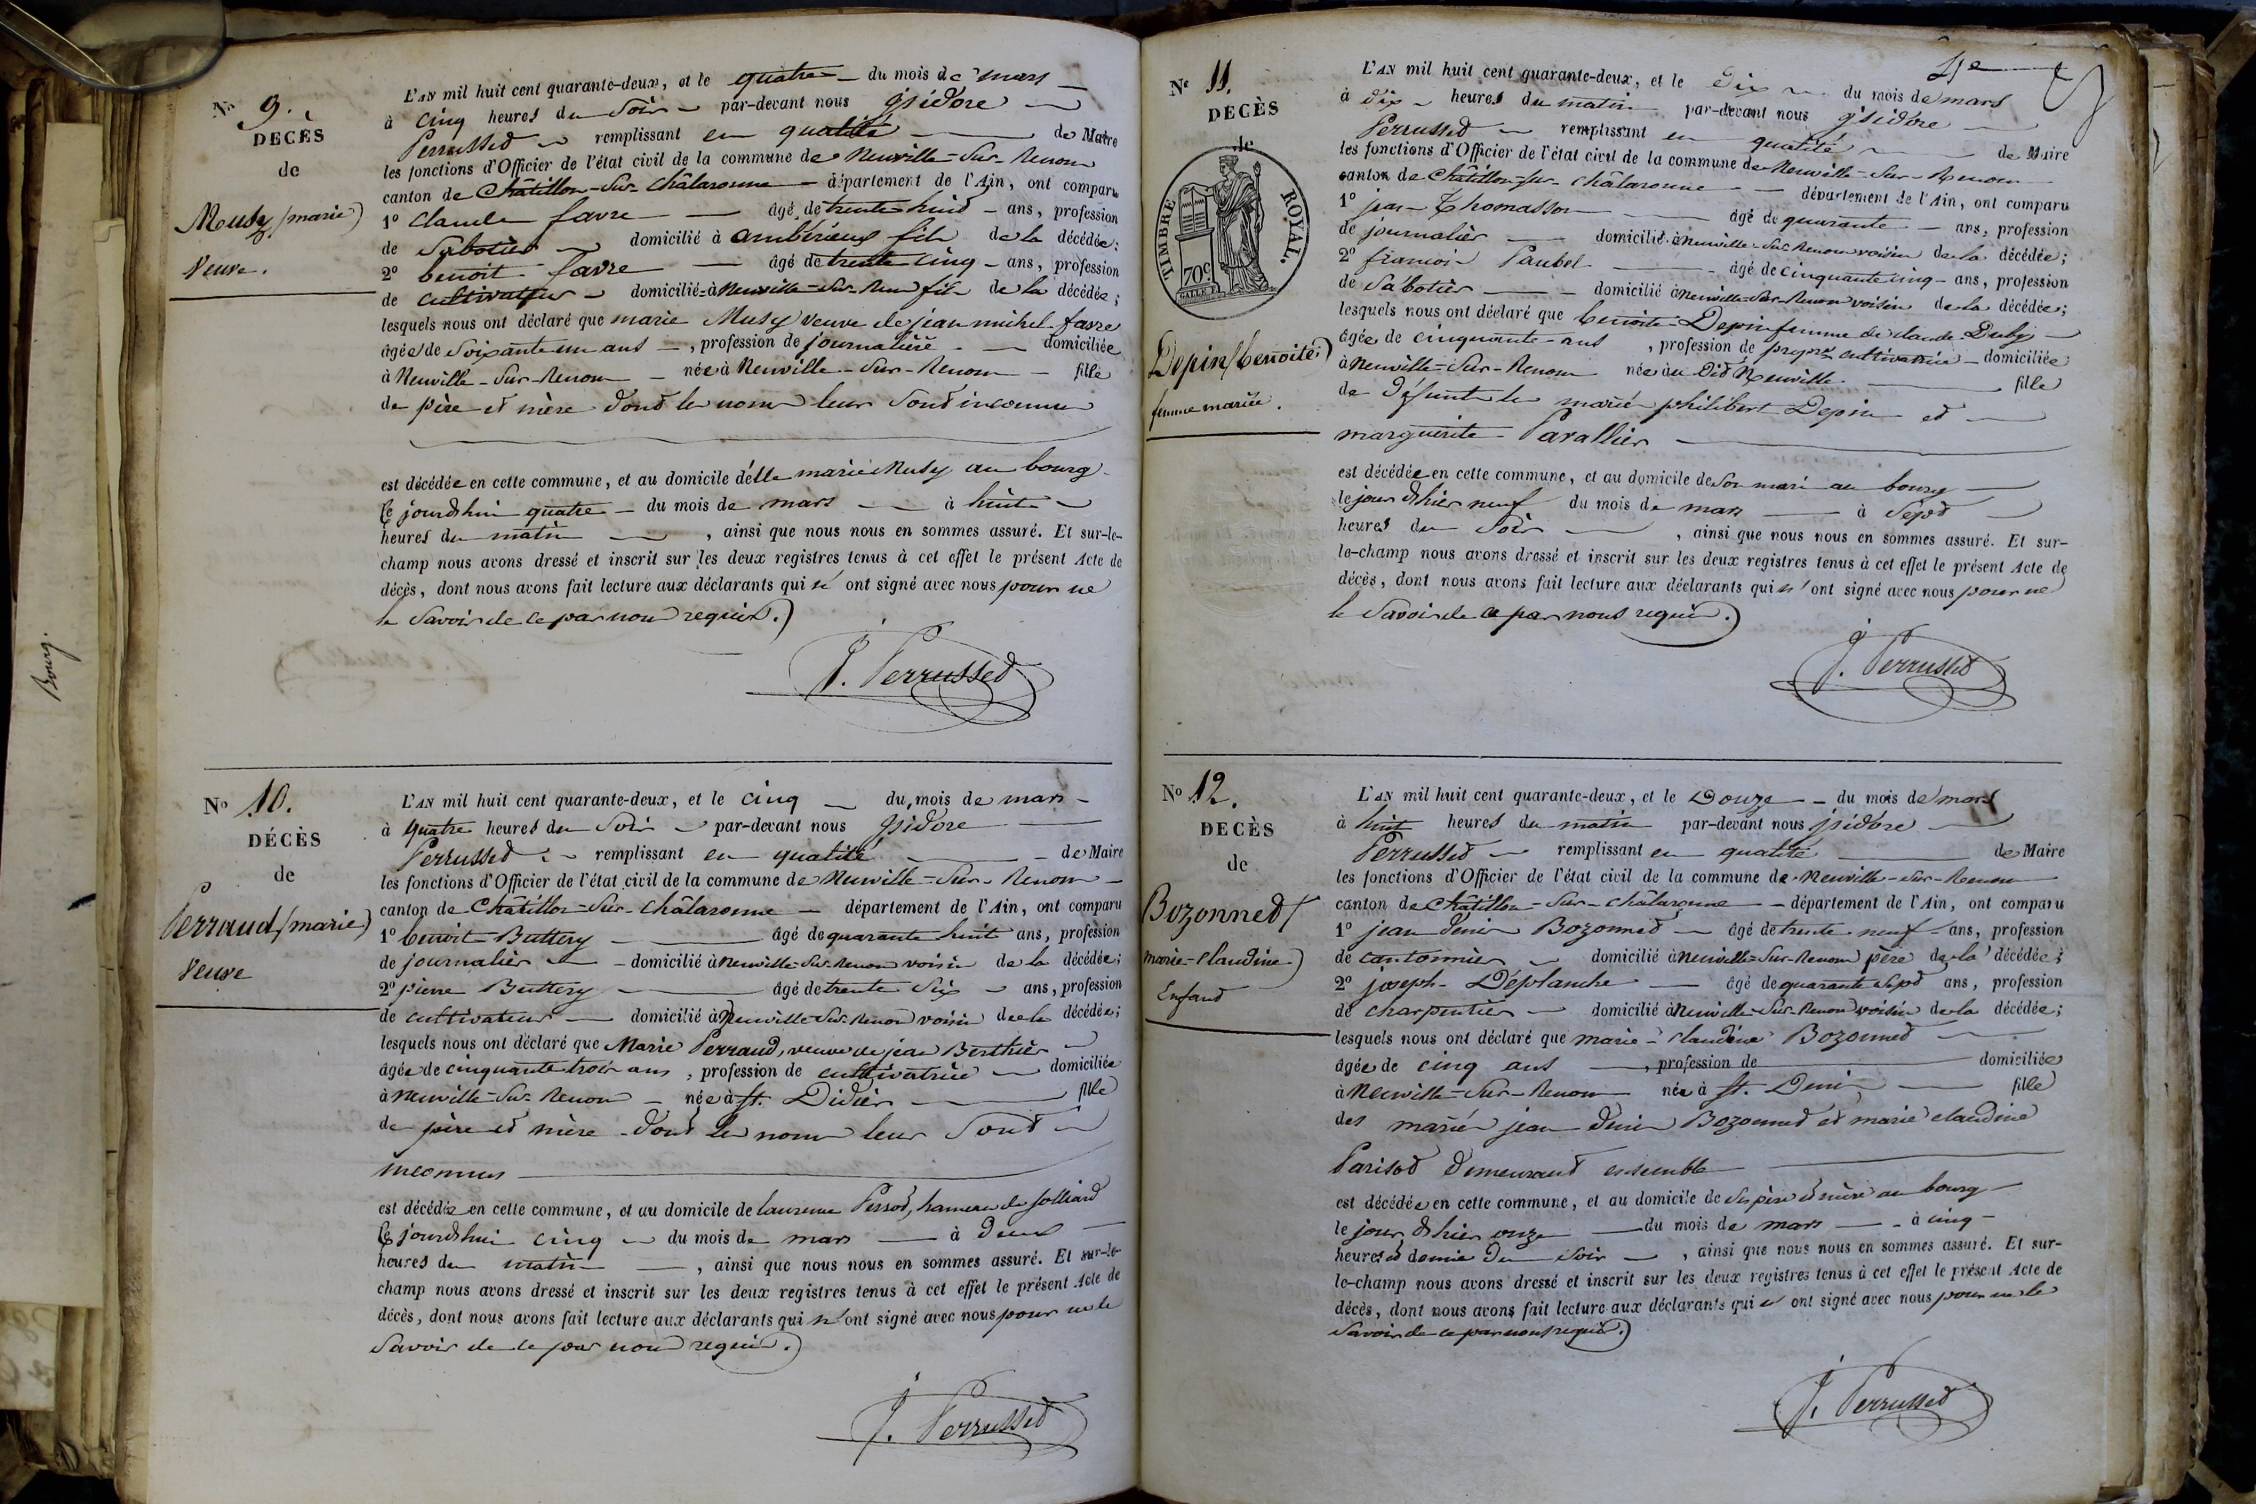 Bourg.
No 9.
DECÈS
de
Musy (marie)
veuve.
L'AN mil huit cent quarante-deux, et le quatre du mois de mars
à cinq heures du soir par-devant nous isidore
Perrussed remplissant en qualité de Maire
les fonctions d'Officier de l'état civil de la commune de Neuville-Sur-Renom
canton de Châtillon-Sur-Châlaronne département de l'Ain, ont comparu
1° claude favre âgé de trente huit ans, profession
de Sabotier domicilié à ambérieux fils de la décédée;
2° benoit favre âgé de trente cinq ans, profession
de cultivateur domicilié à Neuville-Sur-Renom fils de la décédée;
lesquels nous ont déclaré que marie Musy veuve de jean michel favre
âgée de soixante un ans, profession de journalière domiciliée
à Neuville-Sur-Renom née à Neuville-Sur-Renom fille
de père et mère dont le nom leur sont inconnu
est décédée en cette commune, et au domicile d'elle marie Musy au bourg
le jourdhui quatre du mois de mars à huit
heures du matin, ainsi que nous nous en sommes assuré. Et sur-le-
champ nous avons dressé et inscrit sur les deux registres tenus à cet effet le présent Acte de
décès, dont nous avons fait lecture aux déclarants qui n'ont signé avec nous pour ne
le savoir de ce par nous requis.)
J. Perrussed
No 10.
DÉCÈS
de
Perraud (marie)
veuve
L'AN mil huit cent quarante-deux, et le cinq du mois de mars
à quatre heures du soir par-devant nous isidore
Perrussed remplissant en qualité de Maire
les fonctions d'Officier de l'état civil de la commune de Neuville-Sur-Renom
canton de Châtillon-Sur-Châlaronne département de l'Ain, ont comparu
1° benoit Buttery âgé de quarante huit ans, profession
de journalier domicilié à Neuville-Sur-Renom voisin de la décédée;
2° pierre Buttery âgé de trente six ans, profession
de cultivateur domicilié à Neuville Sur Renom voisin de la décédée;
lesquels nous ont déclaré que Marie Perraud, veuve de jean Berthier
âgée de cinquante trois ans, profession de cultivatrice domiciliée
à Neuville-Sur-Renom née à St. Didier fille
de père et mère dont le nom leur sont
inconnus
est décédée en cette commune, et au domicile de laurence Perrod, hameau de Solliard
le jourdhui cinq du mois de mars à deux
heures du matin, ainsi que nous nous en sommes assuré. Et sur-le-
champ nous avons dressé et inscrit sur les deux registres tenus à cet effet le présent Acte de
décès, dont nous avons fait lecture aux déclarants qui n'ont signé avec nous pour ne le
savoir de ce par nous requis.)
J. Perrussed
No 11.
DÉCÈS
de
TIMBRE ROYAL.
70c
Depin (benoite)
femme mariée.
L'AN mil huit cent quarante-deux, et le dix du mois de mars
à dix heures du matin par-devant nous isidore
Perrussed remplissant en qualité de Maire
les fonctions d'Officier de l'état civil de la commune de Neuville-Sur-Renom
canton de Châtillon-sur-Châlaronne département de l'Ain, ont comparu
1° jean Thomasson âgé de quarante ans, profession
de journalier domicilié à Neuville-Sur-Renom voisin de la décédée;
2° francois Paubel âgé de cinquante cinq ans, profession
de Sabotier domicilié à Neuville-Sur-Renom voisin de la décédée;
lesquels nous ont déclaré que benoite Depin femme de claude Duby
âgée de cinquante ans, profession de cultivatrice domiciliée
à Neuville-Sur-Renom née au dit Neuville fille
de défunt les marié philibert Depin et
marguerite Pavallier
est décédée en cette commune, et au domicile de son mari au bourg
le jour d'hier neuf du mois de mars à sept
heures du soir, ainsi que nous nous en sommes assuré. Et sur-
le-champ nous avons dressé et inscrit sur les deux registres tenus à cet effet le présent Acte de
décès, dont nous avons fait lecture aux déclarants qui n'ont signé avec nous pour ne
le savoir de ce par nous requis.)
J. Perrussed
No 12.
DECÈS
de
Bozonned (
marie-claudine)
Enfand
L'AN mil huit cent quarante-deux, et le Douze du mois de mars
à huit heures du matin par-devant nous isidore
Perrussed remplissant en qualité de Maire
les fonctions d'Officier de l'état civil de la commune de Neuville-Sur-Renom
canton de Châtillon-Sur-Châlaronne département de l'Ain, ont comparu
1° jean denis Bozonned âgé de trente neuf ans, profession
de cantonnier domicilié à Neuville-Sur-Renom père de la décédée;
2° joseph Déplanche âgé de quarante sept ans, profession
de charpentier domicilié à Neuville-Sur-Renom voisin de la décédée;
lesquels nous ont déclaré que marie-claudine Bozonned
âgée de cinq ans, profession de domiciliée
à Neuville-Sur-Renom née à St. Denis fille
des marié jean denis Bozonned et marie claudine
Parisod demeurand ensemble
est décédée en cette commune, et au domicile de ses père et mère au bourg
le jour d'hier onze du mois de mars à cinq
heures et demie du soir, ainsi que nous nous en sommes assuré. Et sur-
le-champ nous avons dressé et inscrit sur les deux registres tenus à cet effet le présent Acte de
décès, dont nous avons fait lecture aux déclarants qui n'ont signé avec nous pour ne le
savoir de ce par nous requis.)
J. Perrussed